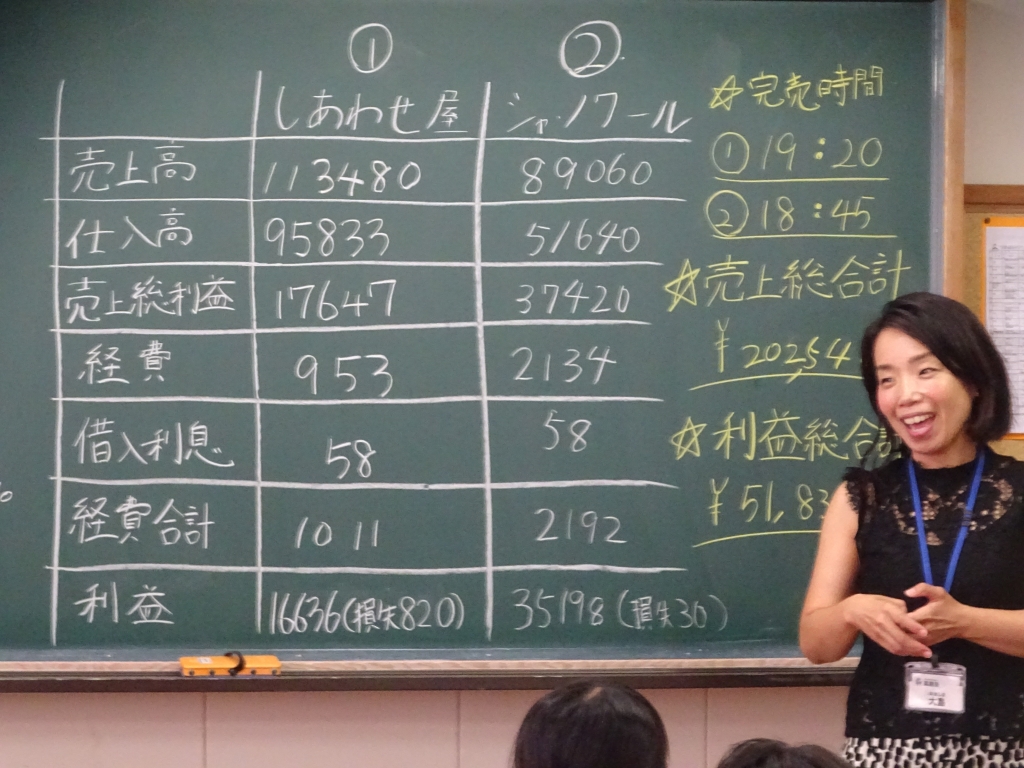 ① ②
しあわせ屋 シャ・ノワール
売上高 113480 89060
仕入高 95833 51640
売上総利益 17647 37420
経費 953 2134
借入利息 58 58
経費合計 1011 2192
利益 16636(損失820) 35198(損失30)
☆完売時間
①19:20
②18:45
☆売上総合計
¥20254
☆利益総合計
¥51,83
大島